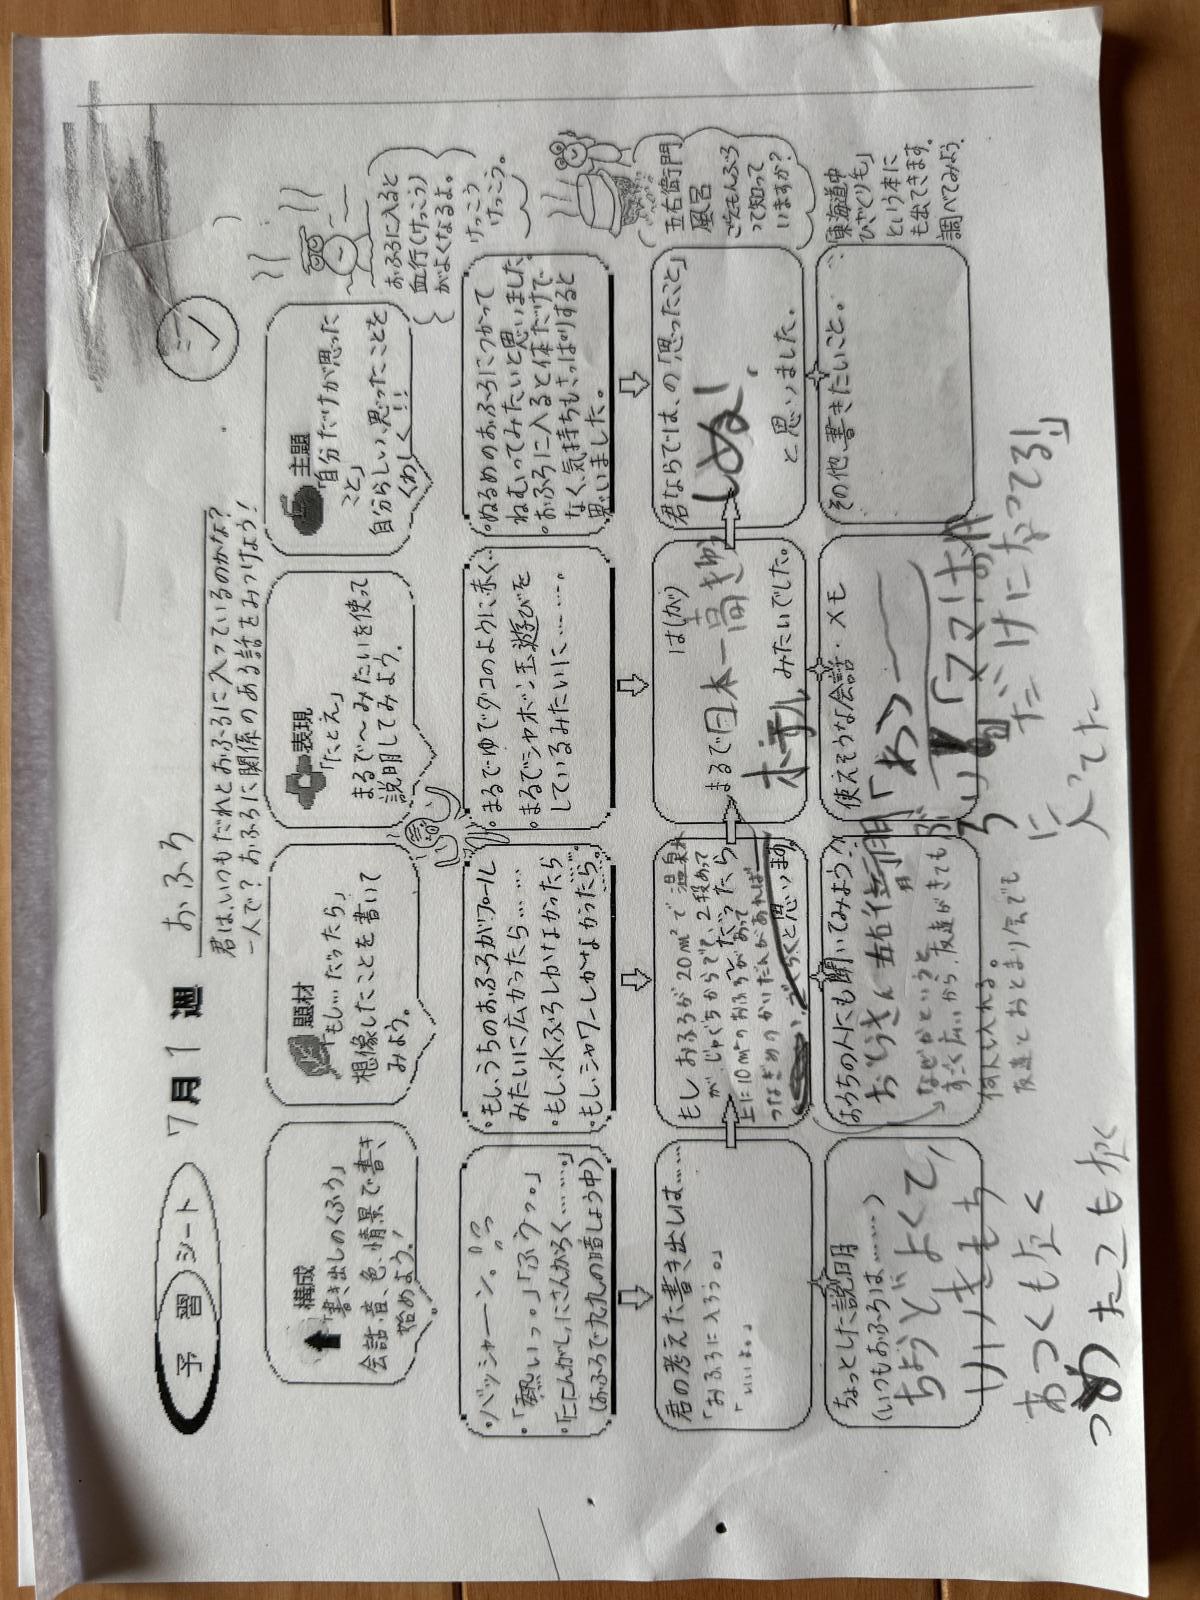 予習シート 7月1週 おふろ
君は、いつもだれとおふろに入っているのかな?
一人で?おふろに関係のある話をみつけよう!
構成
「書き出しのくふう」
会話、音、色、情景で書き、
始めよう!
題材
「もし…だったら」
想像したことを書いて
みよう。
表現
「たとえ」
まるで〜みたいを使って
説明してみよう。
主題
「自分だけが思った
こと」
自分らしい、思ったことを
くわしく!!
おふろに入ると
血行(けっこう)
がよくなるよ。
けっこう
けっこう。
・バッシャーン。
・「熱いっ。」「ふうっ。」
・「ににんがし、にさんがろく……。」
(おふろで九九の暗しょう中)
・もし、うちのおふろがプール
みたいに広かったら……
・もし、水ぶろしかなかったら
・もし、シャワーしかなかったら……
・まるでゆでダコのように赤く…
・まるでシャボン玉遊びを
しているみたいに……
・ぬるめのおふろにつかって
ねむってみたいと思いました。
・おふろに入ると体だけで
なく、気持ちもさっぱりすると
思いました。
五右衛門
風呂
ごえもんぶろ
って知って
いますか?
君の考えた書き出しは……
「おふろに入ろう。」
「いいよ。」
もしおふろが20m²で温泉
が、じゃぐちからでて、2段あって
上に10m²のおふろがあって
だったら
つなぎめのかいだんがあれば
ごくらくと思います
は(が)
まるで日本一高きゅう
ホテル
みたいでした。
君ならでは、の「思ったこと」
しぬ!
と思いました。
「東海道中
ひざくりも」
という本に
も出てきます。
調べてみよう。
ちょっとした説明
(いつもおふろは……)
ちょうどよくて、
いいきもち
あつくもなく
つめたくもなく
おうちの人にも聞いてみよう!
おとうさん 五右衛門
なぜかというと
すごく広いから、友達がきても
何人も入れる。
友達とおとまり会でも
使えそうな会話・メモ
「わっ
「ママはホ
だけになってる!」
入ってた
その他、書きたいこと。